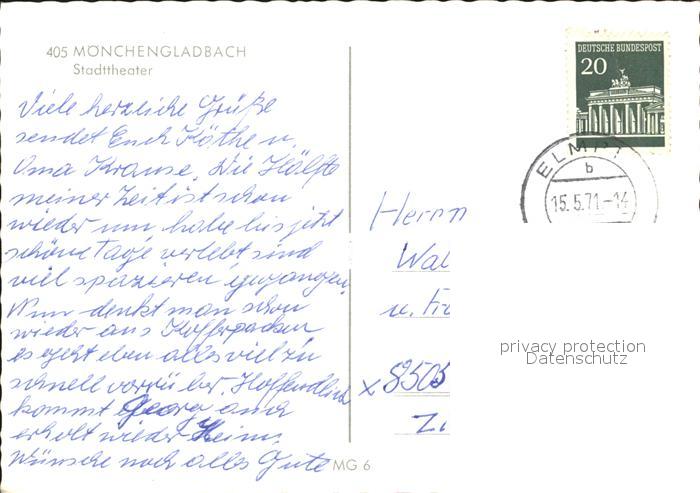 405 MÖNCHENGLADBACH
Stadttheater
Viele herzliche Grüße
sendet Euch Käthe u.
Oma Krause. Die Hälfte
meiner Zeit ist schon
wieder um, habe bis jetzt
schöne Tage verlebt sind
viel spazieren gegangen.
Nun denkt man schon
wieder ans Kofferpacken
es geht eben alles viel zu
schnell vorrüber. Hoffendlich
kommt Georg auch
erholt wieder Heim.
Wünsche noch alles Gute
MG 6
DEUTSCHE BUNDESPOST
20
ELMPT
b
15.5.71.-14
Herrn
Wal
u. Fr
x 8505
Zi
privacy protection
Datenschutz